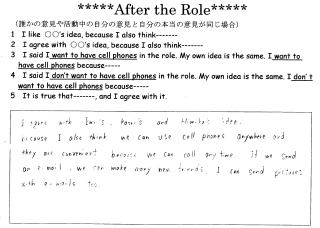 *****After the Role*****
(誰かの意見や活動中の自分の意見と自分の本当の意見が同じ場合)
1 I like ○○'s idea, because I also think-------
2 I agree with ○○'s idea, because I also think-------
3 I said I want to have cell phones in the role. My own idea is the same. I want to
have cell phones because-----
4 I said I don't want to have cell phones in the role. My own idea is the same. I don't
want to have cell phones because-----
5 It is true that-------, and I agree with it.
I agree with and idea.
because I also think we can use cell phones anywhere and
they are convenient because we can call any time. If we send
an e-mail, we can make many new friends. I can send pictures
with e-mails too.